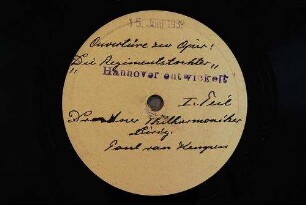 15. JUNI 1937
Ouvertüre zu Oper:
"Die Regimentstochter"
Hannover entwickelt
I. Teil
Dresdner Philharmoniker
Dirig.
Paul van Kempen